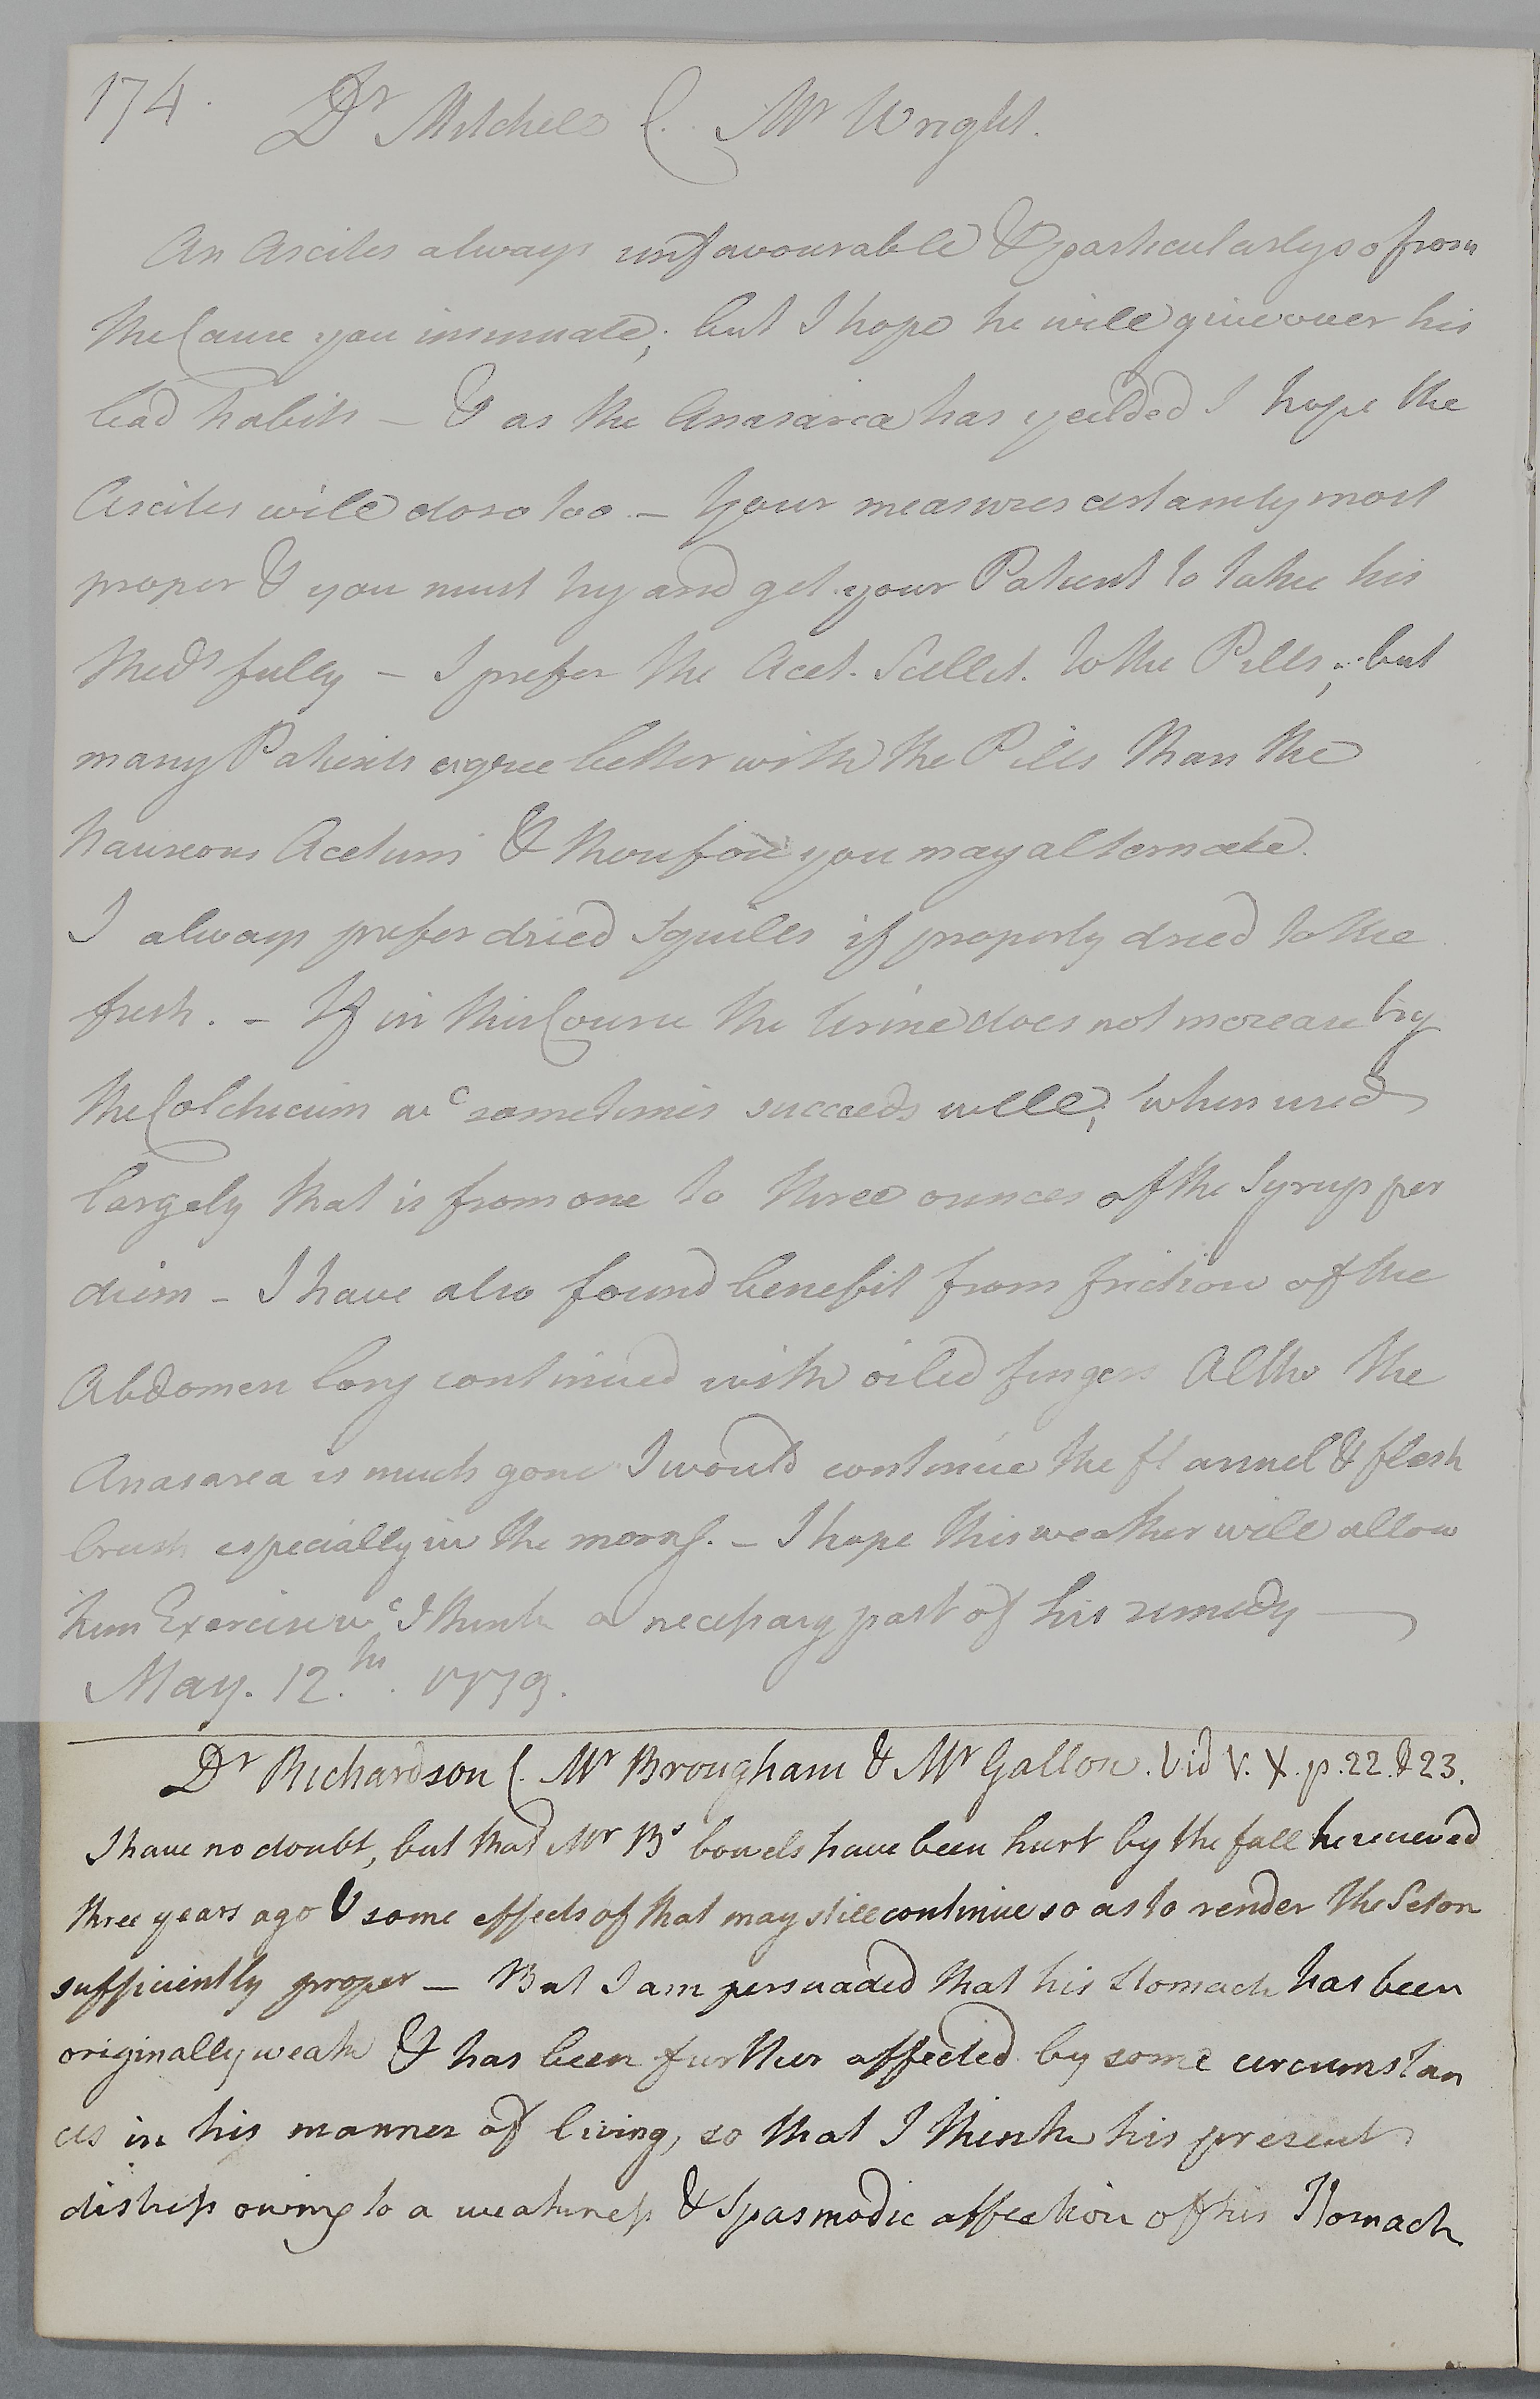 174.
Dr Mitchell C. Mr Wright.
An Ascites always unfavourable & particularly so from
the Cause you insinuate; but I hope he will give over his
bad habits – & as the Anasarca has yeilded I hope the
Ascites will do so too – Your measures certainly most
proper & you must try and get your Patient to take his
Meds fully – I prefer the Acet. Scillit. to the Pills; but
many Patients agree better with the Pills than the
Nauseous Acetum & therefore you may alternate.
I always prefer dried Squills if properly dried to the
fresh. – If in this Course the Urine does not increase try
the Colchicum wc sometimes succeeds well; when used
largely that is from one to three ounces of the Syrup per
diem – I have also found benefit from friction of the
Abdomen long continued with oiled fingers Altho the
Anasarca is much gone I would continue the flannel & flesh
brush especially in the morng. – I hope this weather will allow
him Exercise wc I think a necessary part of his remedy
May. 12.th. 1779.
Dr Richardson C. Mr Brougham & Mr Gallon. Vid V. X. p. 22. & 23.
I have no doubt, but that Mr Bs bowels have been hurt by the fall he received
three years ago & some effects of that may still continue so as to render the Seton
sufficiently proper – But I am persuaded that his Stomach has been
originally weak & has been further affected by some circumstan
ces in his manner of living, so that I think his present
distress owing to a weakness & Spasmodic affection of his Stomach